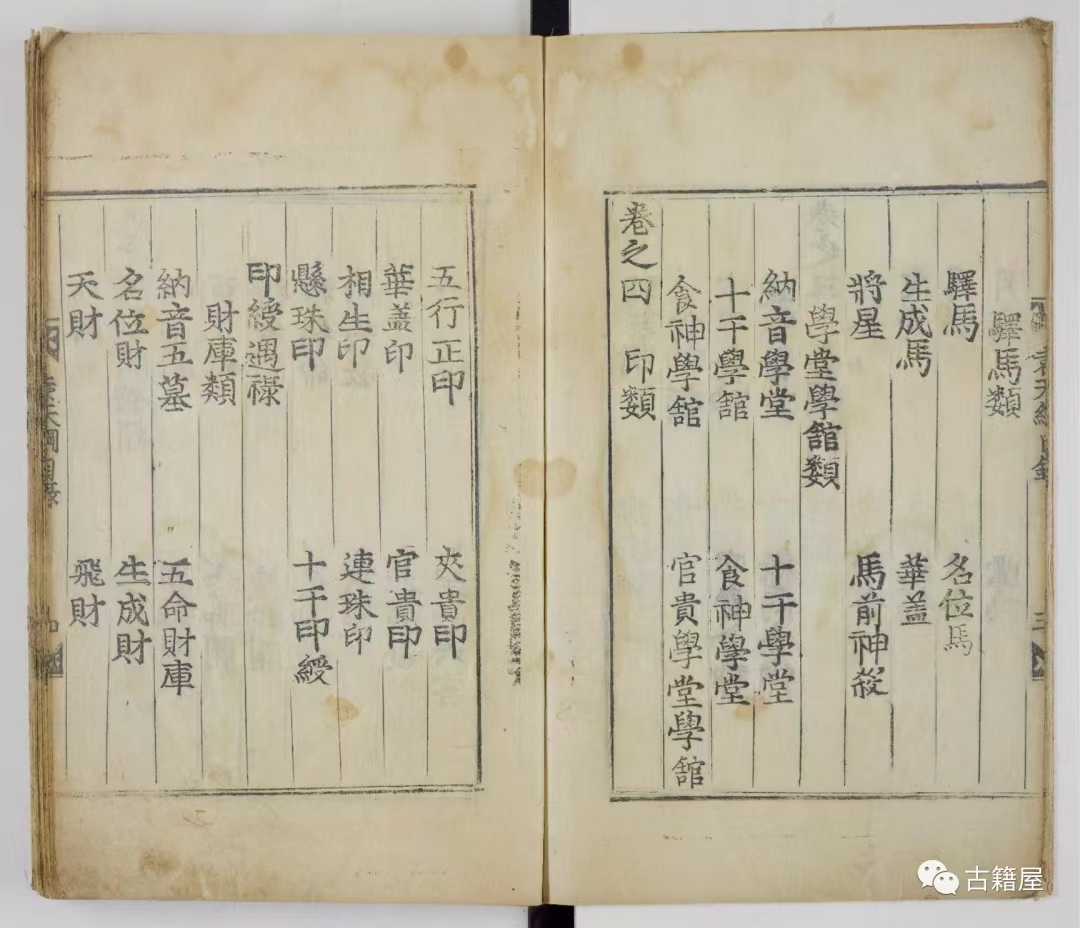 驛馬類
驛馬 名位馬
生成馬 華盖
將星 馬前神殺
學堂學舘類
納音學堂 十干學堂
十干學舘 食神學堂
食神學舘 官貴學堂學舘
卷之四 印類
五行正印 夾貴印
華盖印 官貴印
相生印 連珠印
懸珠印 十干印綬
印綬遇祿
財庫類
納音五墓 五命財庫
名位財 生成財
天財 飛財
袁天綱
三
古籍屋